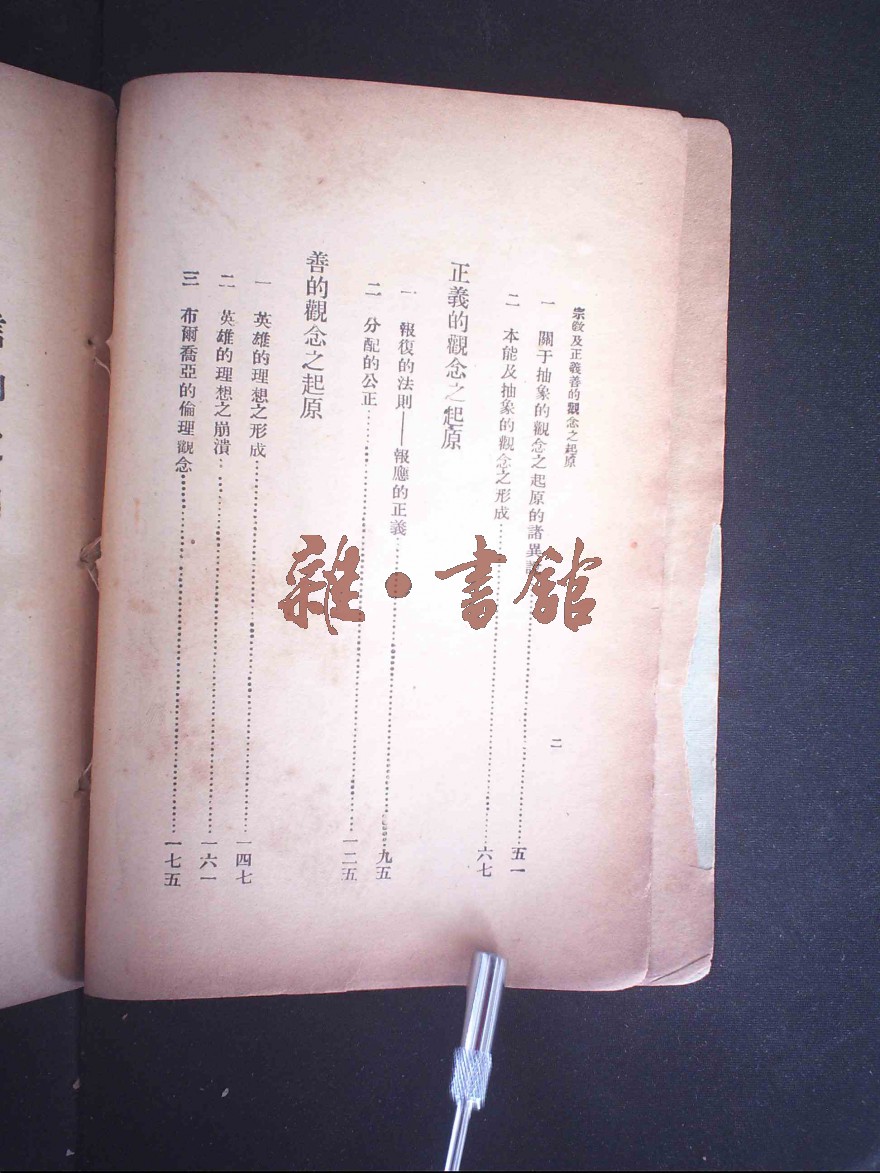 宗敎及正義善的觀念之起原
二
一 關于抽象的觀念之起原的諸異 五一
二 本能及抽象的觀念之形成 六七
正義的觀念之起原
一 報復的法則——報應的正義 九五
二 分配的公正 一二五
善的觀念之起原
一 英雄的理想之形成 一四七
二 英雄的理想之崩潰 一六一
三 布爾喬亞的倫理觀念 一七五
雜·書館